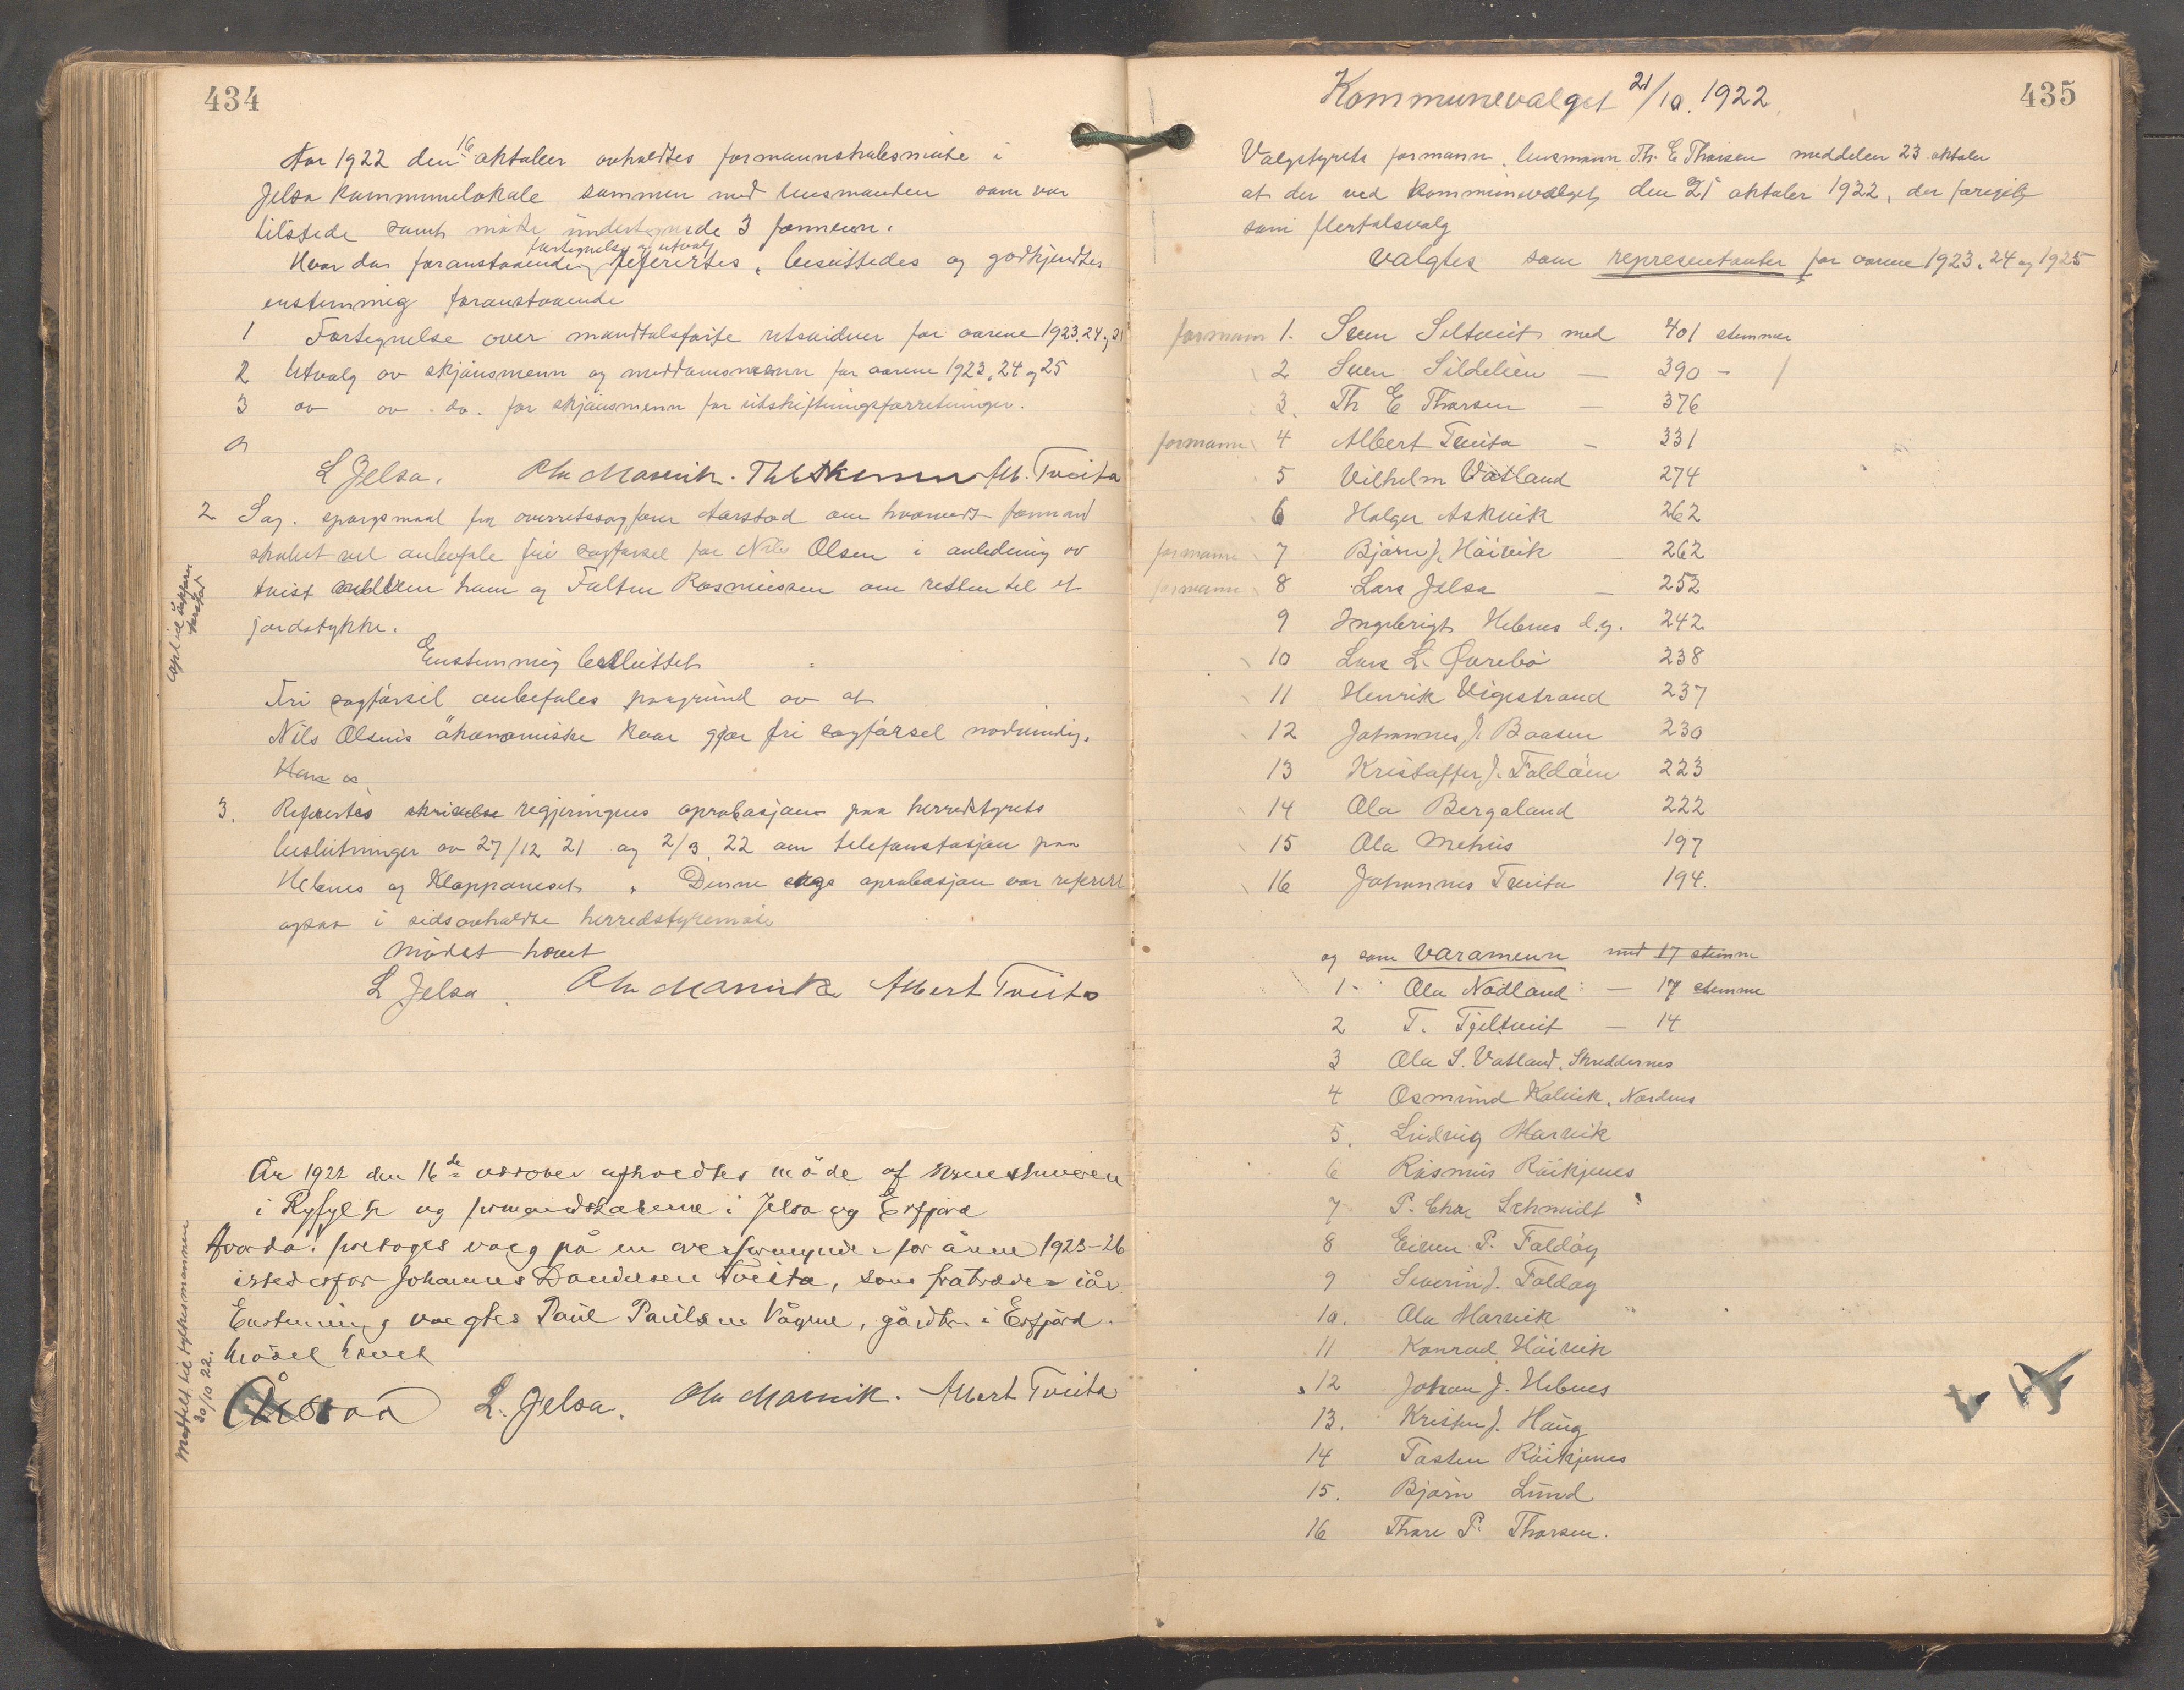 434
Aar 1922 den 16 oktober avholdtes formannskabsmöte i
Jelsa kommunelokale sammen med lensmanden som var
tilstede samt möte undertegnede 3 formenn.
fortegnelse og utvalg
Hvor da foranstaaende referertes, besluttedes og godkjendtes
enstemmig foranstaaende
1 Fortegnelse over mandtalsførte retsvidner for aarene 1923, 24 og 25
2 Utvalg av skjönsmenn og meddomsmenn for aarene 1923, 24 og 25
3 av av do. for skjönsmenn for utskiftningsforretninger.
L Jelsa. Ola Marvik. Alb. Tveita
2 Sag. spørgsmaal fra overretssagfører Aarstad om hvorvidt formand
skabet vil anbefale fri sagførsel for Nils Olsen i anledning av
tvist mellem ham og Rasmussen om retten til et
jordstykke.
Enstemmig besluttet
Fri sagförsel anbefales paagrund av at
Nils Olsens ökonomiske kaar gjør fri sagförsel nødvendig.
3. Refertes skrivelse regjeringens aprobasjon paa herredstyrets
beslutninger av 27/12 21 og 2/3 22 om telefonstasjon paa
Hebnes og Kloppaneset. Denne sags aprobasjon var referert
ogsaa i sidsavholdte herredstyremöte
Mödet hævet
L Jelsa. Ola Marvik Albert Tveita
År 1922 den 16de oktober afholdtes möde af
i Ryfylke og formandskaberne i Jelsa og Erfjord
Hvor da foretoges valg på en overformynder for årene 1923-26
istedetfor Johannes Tveita, som fratræder iår.
Enstemmig valgtes Paul Paulsen Vågene, gårdbr. i Erfjord.
Mödet hævet
L. Jelsa. Ola Marvik. Albert Tveita
Meddelt til fylkesmannen
30/10 22.
435
Kommunevalget 21/10. 1922
Valgstyrets formann, lensmann Th. E Thorsen meddeler 23 oktober
at der ved kommunevalget den 21 oktober 1922, der foregik
som flertalsvalg
valgtes som representanter for aarene 1923, 24 og 1925
formann 1. Sven Seltveit med 401 stemmer
2 Sven Sildelien — 390 -
3. Th E Thorsen — 376
formann 4 Albert Tveita - 331
5 Vilhelm Vatland 274
6 Holger Askvik 262
formann 7 Björn J. Höivik - 262
formann 8 Lars Jelsa - 252
9 Ingebrigt Hebnes d.y. 242
10 Lars L. Øvrebö 238
11 Henrik Vigestrand 237
12 Johannes J. Boasen 230
13 Kristoffer J. Foldöen 223
14 Ola Bergaland 222
15 Ola Mehus 197
16 Johannes Tveita 194.
og som varamenn med 17 stemme
1- Ola Nödland — 17 stemme
2 T. Tjeltveit — 14
3 Ola S. Vatland, Skreddernes
4 Osmund Kolvik, Nordnes
5. Ludvig Marvik
6 Rasmus Röikjenes
7 P. Chr Schmidt
8 Eiven P. Foldöy
9 Severin J. Foldöy
10. Ola Marvik
11 Konrad Höivik
12 Johan J. Hebnes
13. Kristen J. Haug
14 Tosten Röikjenes
15. Björn Lund
16 Thore P. Thorsen.